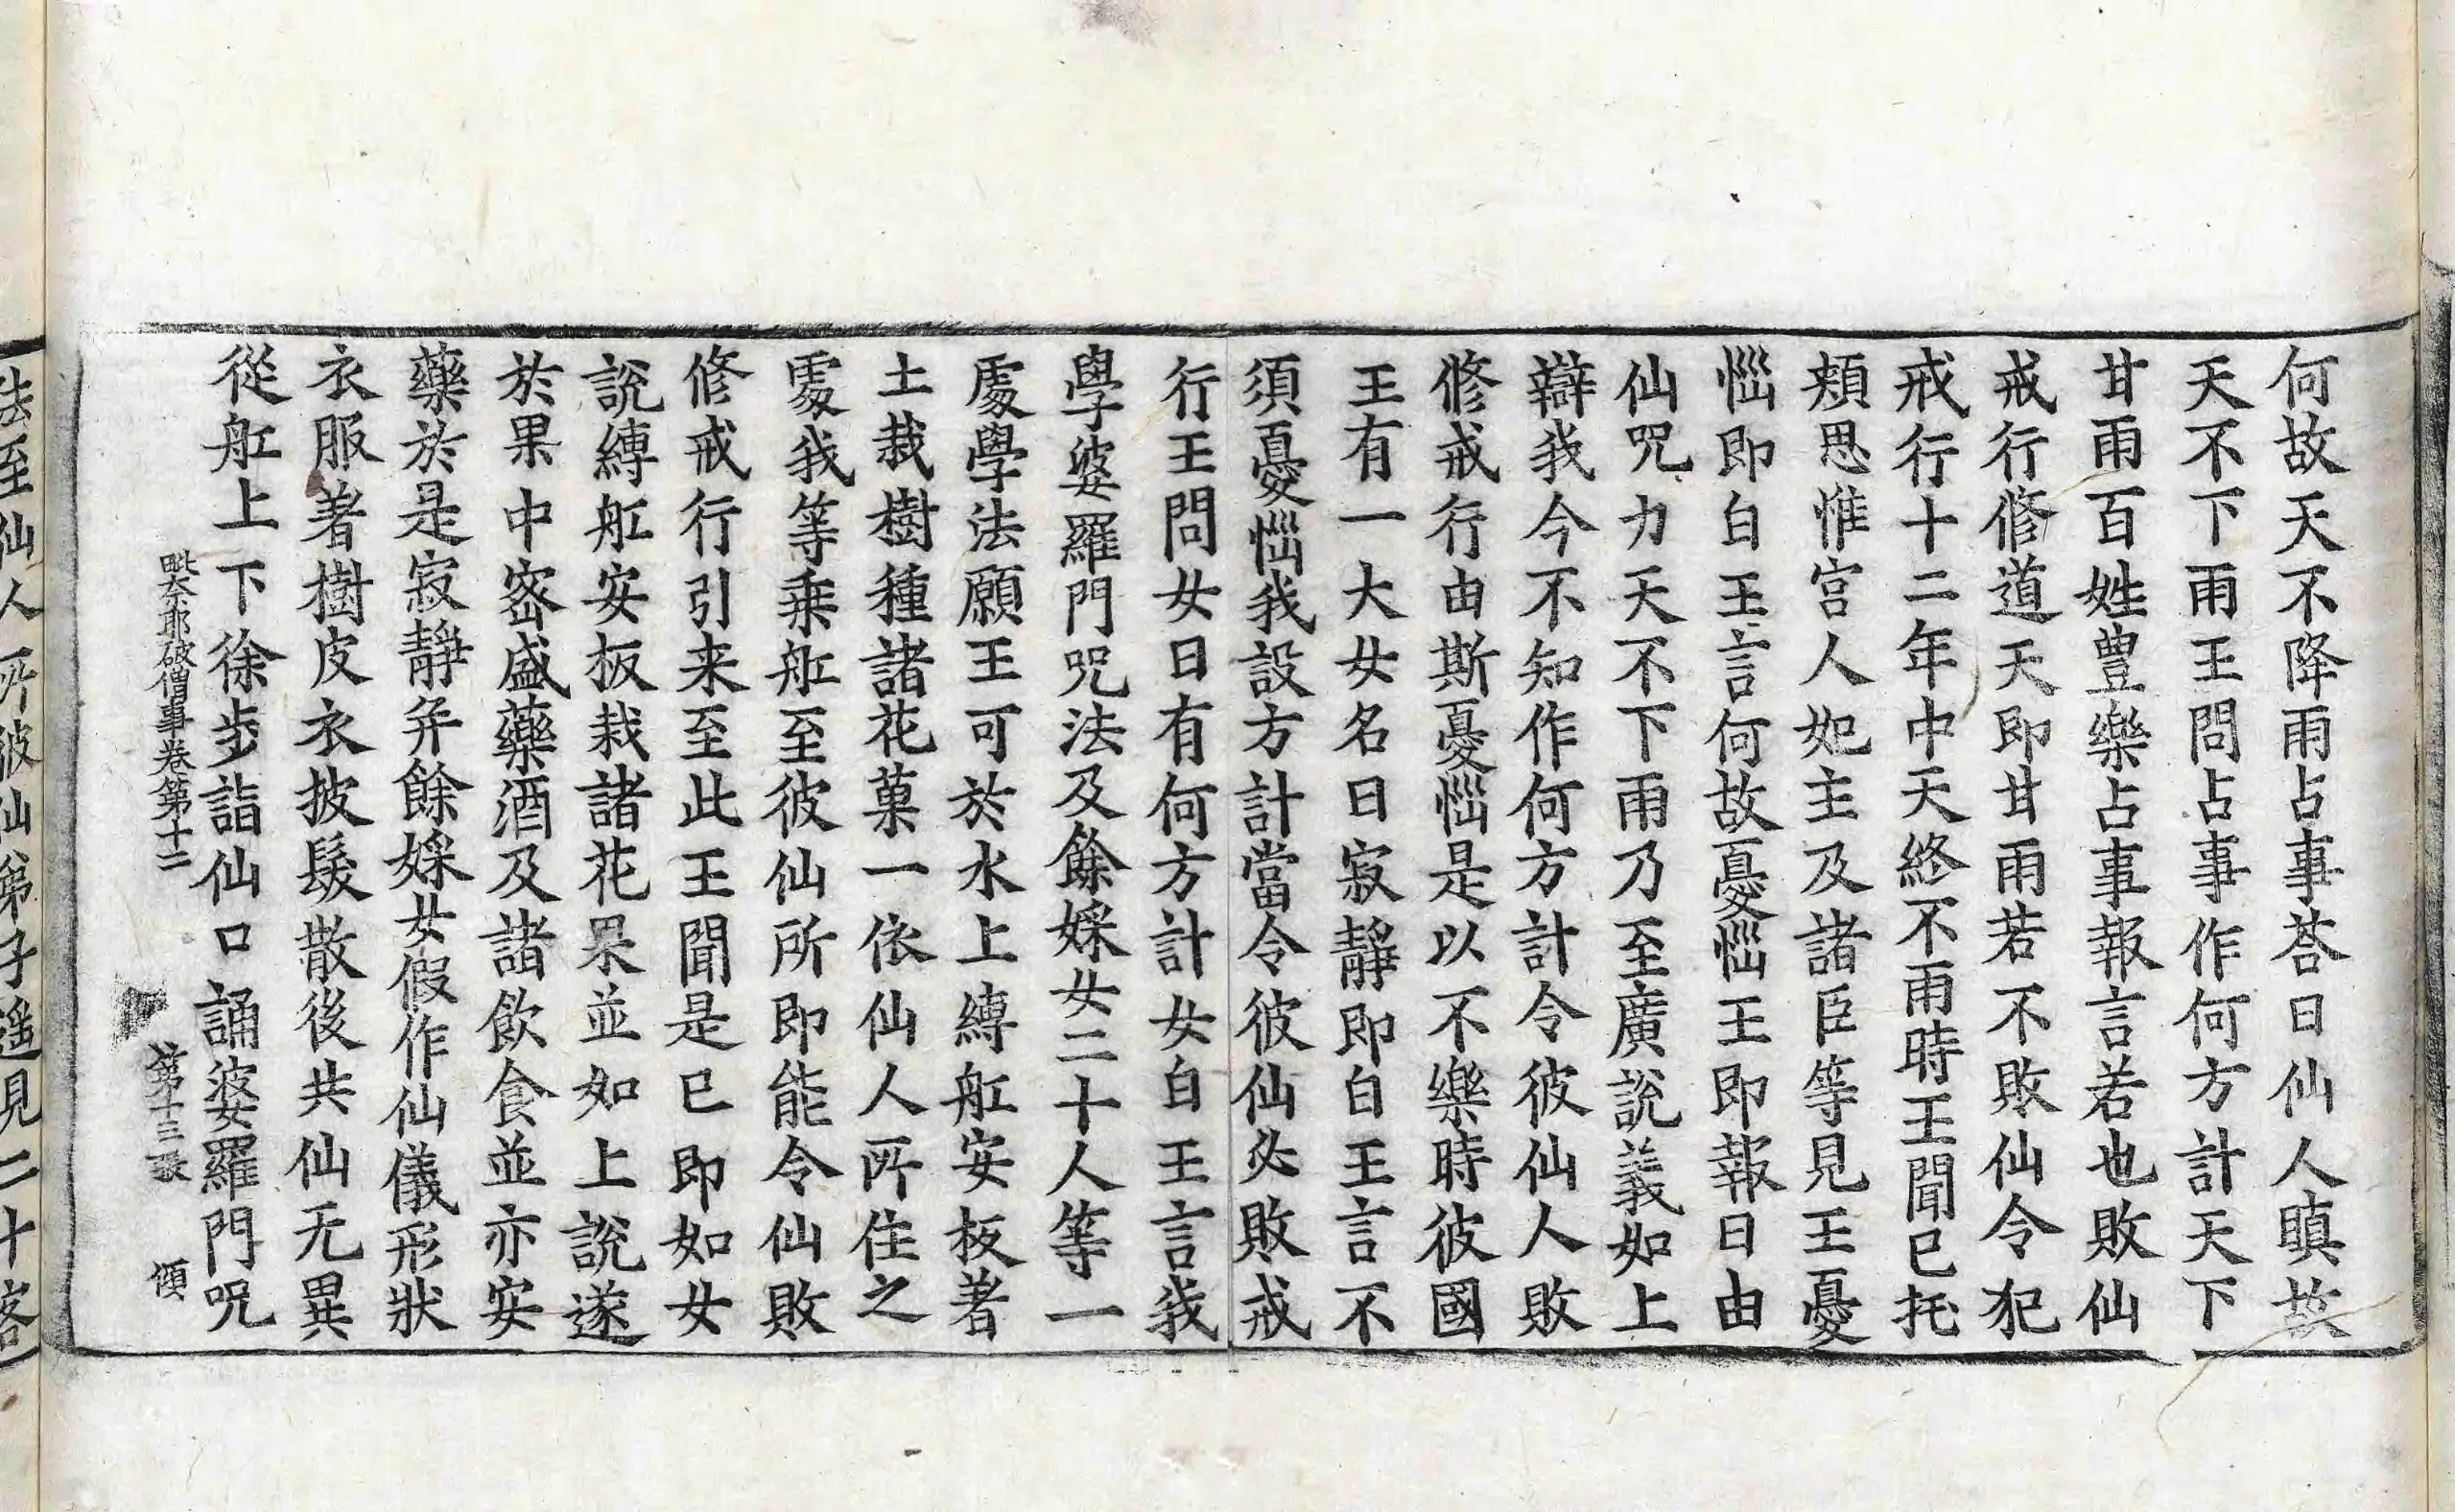 何故天不降雨占事荅曰仙人瞋故
天不下雨王問占事作何方計天下
甘雨百姓豊樂占事報言若也敗仙
戒行修道天即甘雨若不敗仙令犯
戒行十二年中天終不雨時王聞已托
頬思惟宮人妃主及諸臣等見王憂
惱即白王言何故憂惱王即報曰由
仙咒力天不下雨乃至廣說義如上
辯我今不知作何方計令彼仙人敗
修戒行由斯憂惱是以不樂時彼國
王有一大女名曰寂靜即白王言不
須憂惱我設方計當令彼仙必敗戒
行王問女曰有何方計女白王言我
學婆羅門咒法及餘婇女二十人等一
處學法願王可於水上縛舡安板著
土栽樹種諸花菓一依仙人所住之
處我等乗舡至彼仙所即能令仙敗
修戒行引来至此王聞是已即如女
說縛舡安板栽諸花果並如上說遂
於果中密盛藥酒及諸飲食並亦安
藥於是寂靜并餘婇女假作仙儀形狀
衣服著樹皮衣披髮散後共仙无異
從舡上下徐步詣仙口誦婆羅門咒
毗奈耶破僧事卷第十二 第十三張 傾
法至仙人所彼仙弟子遥見二十客